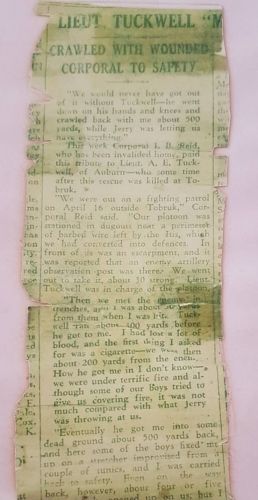 LIEUT. TUCKWELL "M
CRAWLED WITH WOUNDED
CORPORAL TO SAFETY
"We would never have got out
of it without Tuckwell—he went
down on his hands and knees and
crawled back with me about 500
yards, while Jerry was letting us
have everything."
This week Corporal L. B. Reid,
who has been invalided home, paid
this tribute to Lieut. A. E. Tuck-
well, of Auburn—who some time
after this rescue was killed at To-
bruk.
"We were out on a fighting patrol
on April 16 outside Tobruk," Cor-
poral Reid said. "Our platoon was
stationed in dugouts near a perimeter
of barbed wire left by the
we had converted into defences. In
front of us was an escarpment, and it
was reported that an enemy artillery
observation post was there. We went
out to take it, about 30 strong. Lieut.
Tuckwell was in charge of the platoon.
"Then we met the enemy in
trenches, and I was about 50 yards
from them when I was hit. Tuck-
well ran about 400 yards before
he got to me. I had lost a lot of
blood, and the first thing I asked
for was a cigarette—we were then
about 200 yards from the enemy.
How he got me in I don't know—
we were under terrific fire and al-
though some of our boys tried to
give us covering fire, it was not
much compared with what Jerry
was throwing at us.
"Eventually he got me into some
dead ground about 500 yards back,
and here some of the boys fixed me
up on a stretcher improvised from a
couple of tunics, and I was carried
back to safety. Even on the way
back, however, about four or five
us; but I